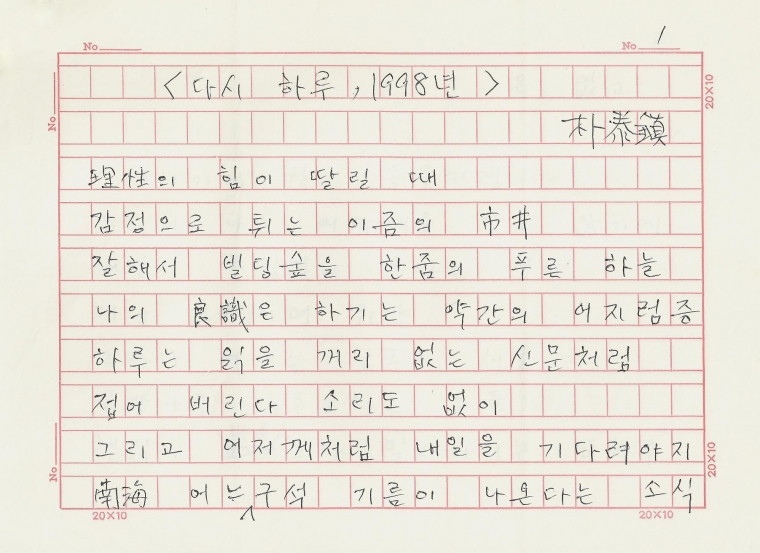 No 1
No
<다시 하루, 1998년>
20×10
No
朴泰鎭
理性의 힘이 딸릴 때
감정으로 튀는 이즘의 市井
잘해서 빌딩숲을 한줌의 푸른 하늘
나의 良識은 하기는 약간의 어지럼증
하루는 읽을 꺼리 없는 신문처럼
접어 버린다 소리도 없이
그리고 어저께처럼 내일을 기다려야지
20×10
No
南海 어느 구석 기름이 나온다는 소식
20×10
20×10